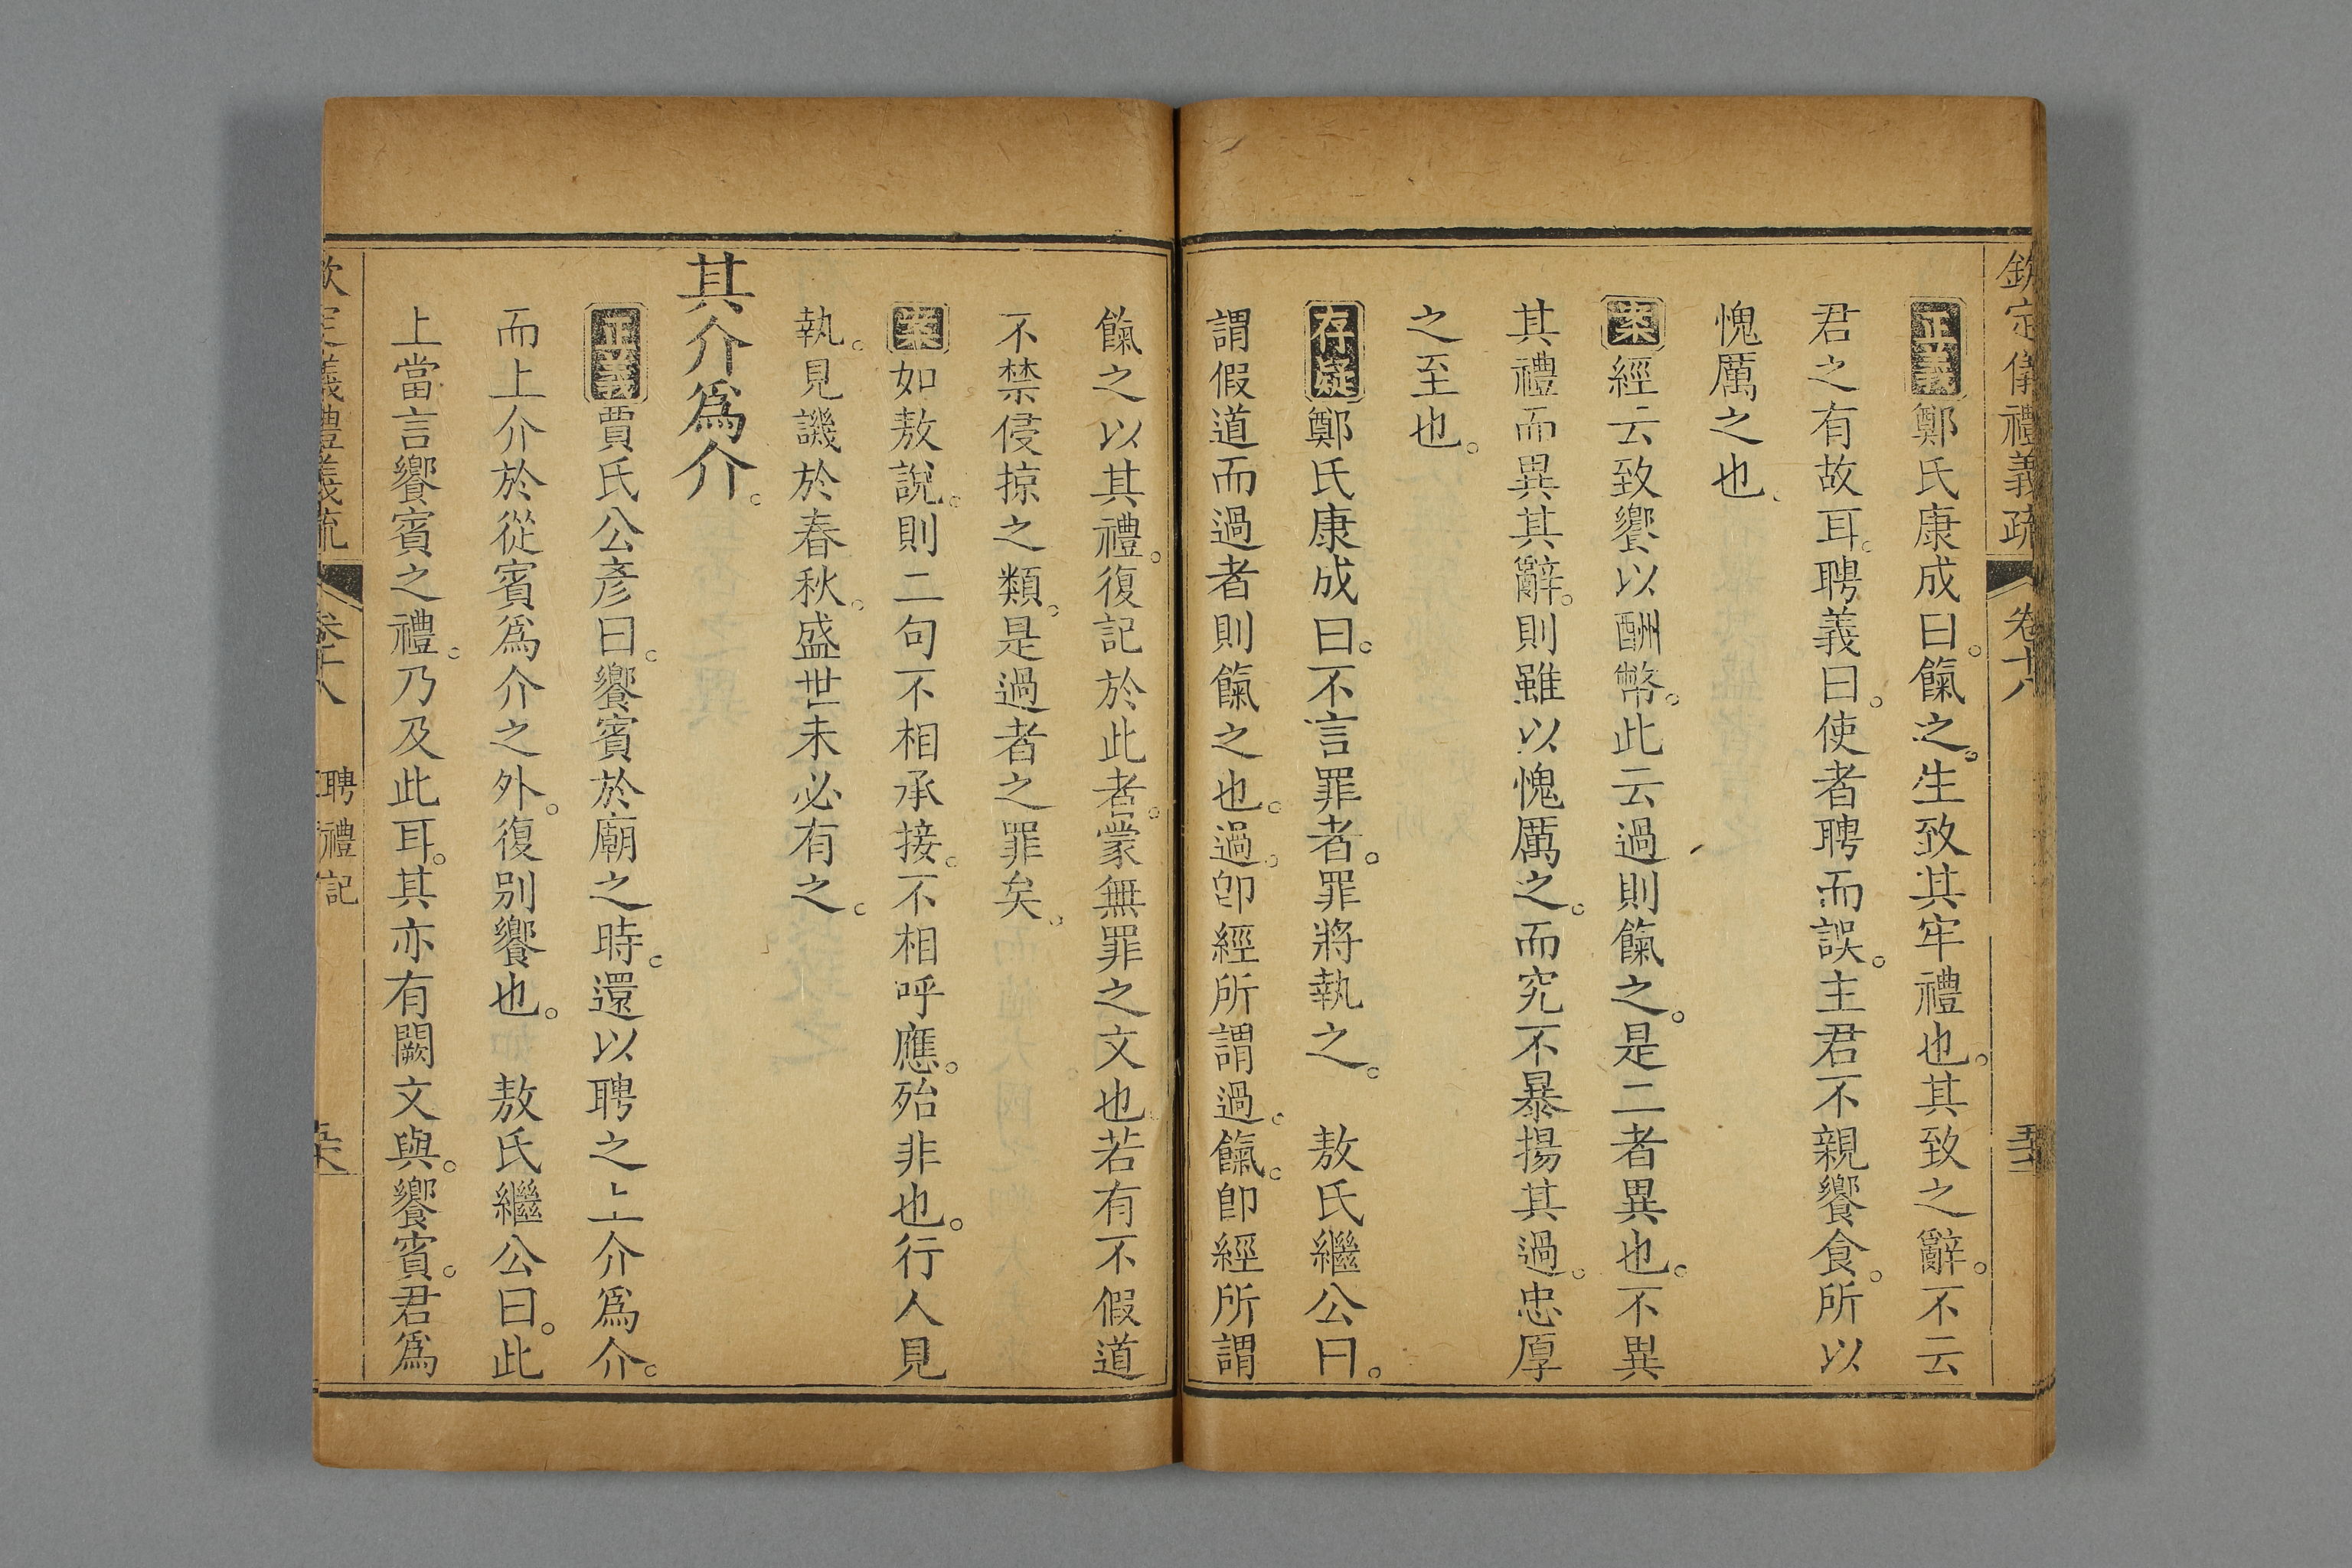 欽定儀禮義疏 卷十八
正義鄭氏康成曰。餼之。生致其牢禮也。其致之辭。不云
君之有故耳。聘義曰。使者聘而誤。主君不親饗食。所以
愧厲之也。
案經云致饗以酬幣。此云過則餼之。是二者異也。不異
其禮而異其辭。則雖以愧厲之。而究不暴揚其過。忠厚
之至也。
存疑鄭氏康成曰。不言罪者。罪將執之。 敖氏繼公曰。
謂假道而過者則餼之也。過。卽經所謂過。餼。卽經所謂
餼之以其禮。復記於此者。蒙無罪之文也。若有不假道
不禁侵掠之類。是過者之罪矣。
案如敖說。則二句不相承接。不相呼應。殆非也。行人見
執。見譏於春秋。盛世未必有之。
其介爲介。
正義賈氏公彥曰。饗賓於廟之時。還以聘之上介爲介。
而上介於從賓爲介之外。復別饗也。 敖氏繼公曰。此
上當言饗賓之禮。乃及此耳。其亦有闕文與。饗賓。君爲
欽定儀禮義疏 卷十八 聘禮記